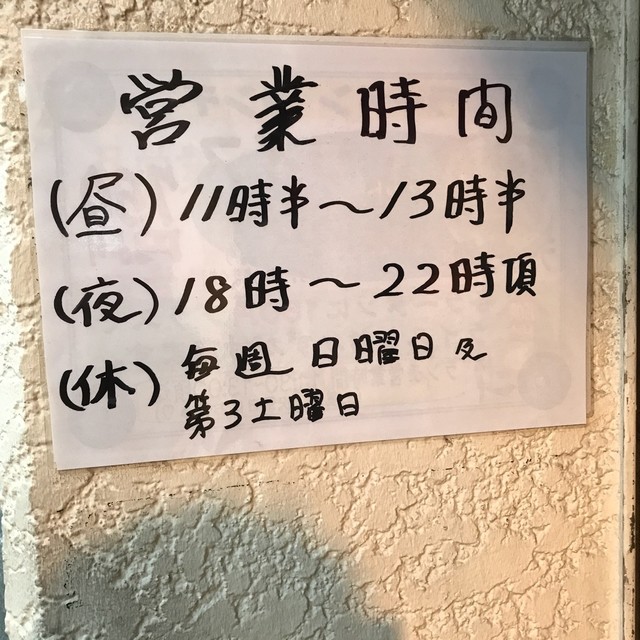 営業時間
(昼) 11時半〜13時半
(夜) 18時〜22時頃
(休) 毎週 日曜日及
第3土曜日